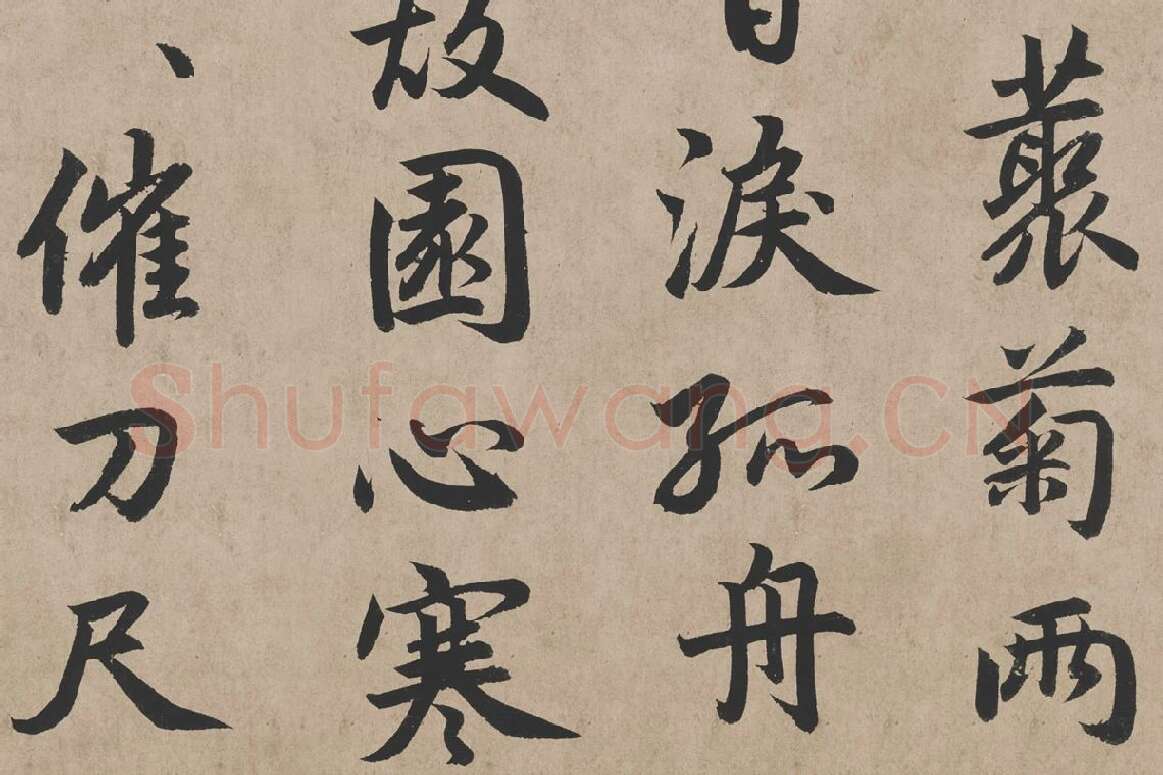 藂菊兩
日淚孤舟
故園心寒
、催刀尺
Shufawang.CN